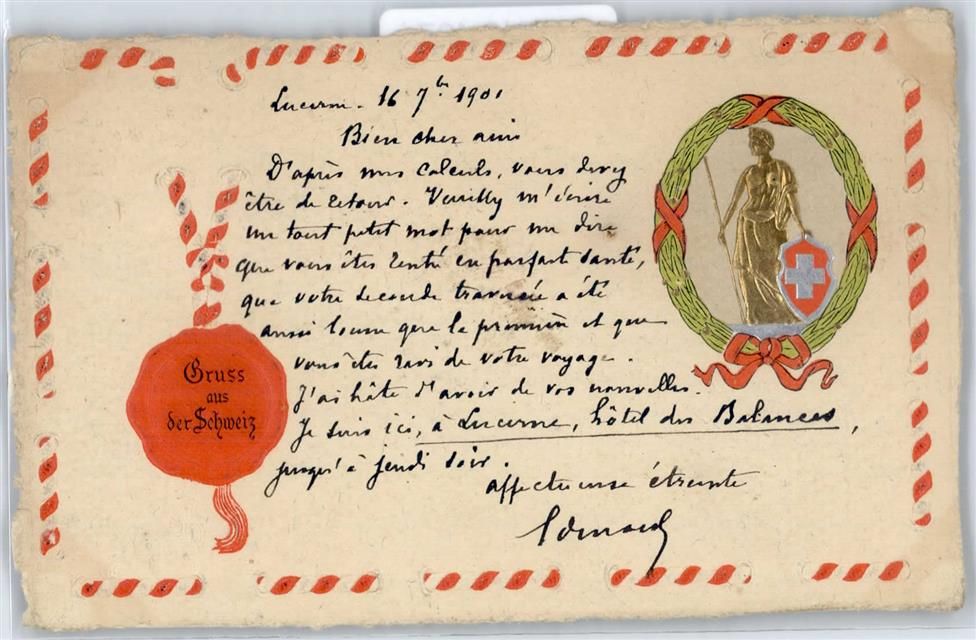 Lucerne. 16 7bre 1901
Bien cher ami
D'après mes calculs, vous devez
être de retour. Veuillez m'écrire
un tout petit mot pour me dire
que vous êtes rentré en parfaite santé,
que votre seconde traversée a été
aussi bonne que la première et que
vous êtes ravi de votre voyage.
J'ai hâte d'avoir de vos nouvelles.
Je suis ici, à Lucerne, hôtel des Balances,
jusqu'à jeudi soir.
affectueuse étreinte
Edouard
Gruss
aus
der Schweiz